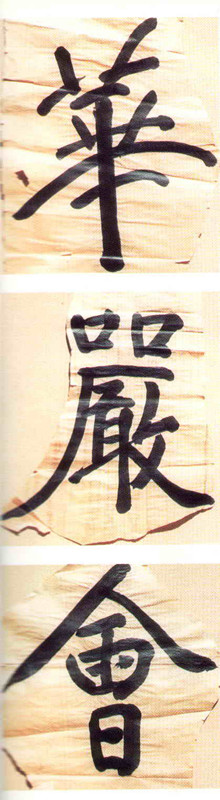 華嚴會